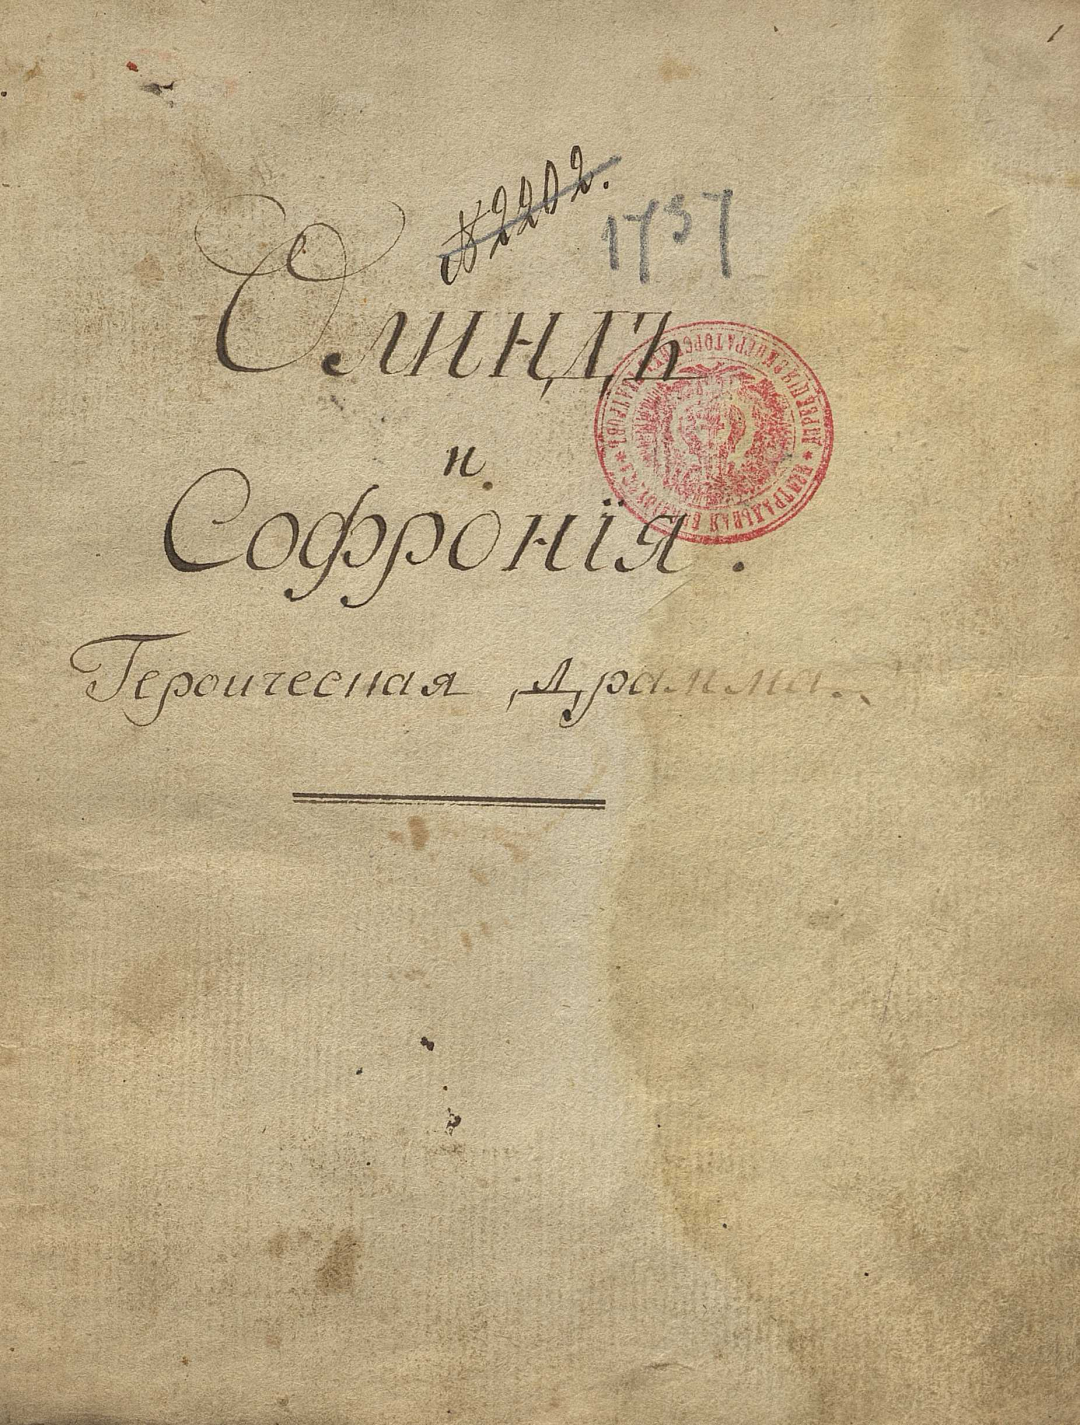 1
№ 2202.
1757
Олиндъ
и
Софронія.
Героическая Драмма.